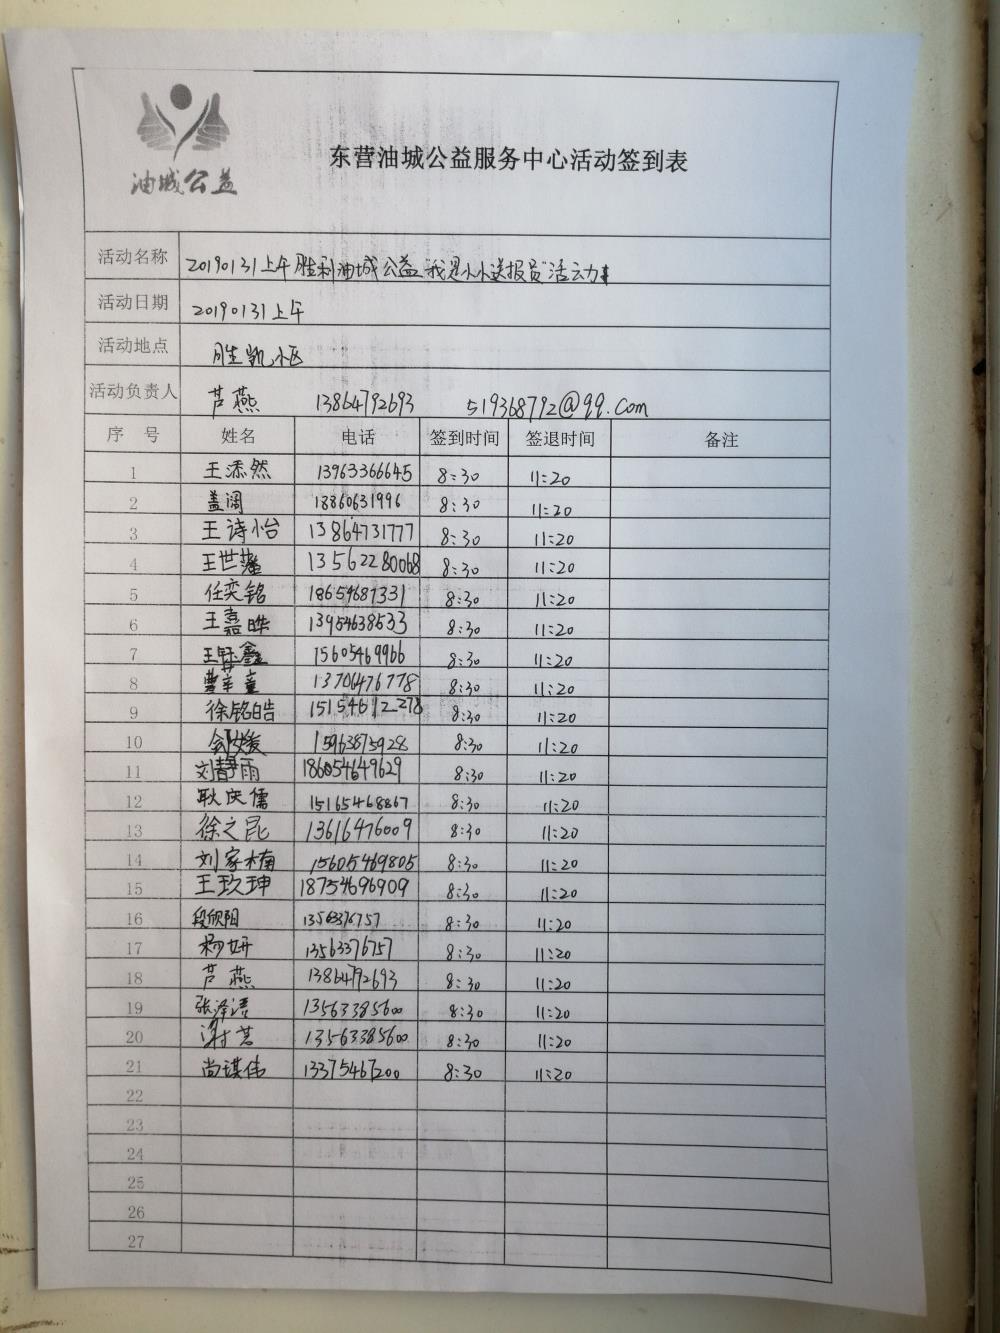 油城公益
东营油城公益服务中心活动签到表
活动名称 20190131上午胜利油城公益"我是小小送报员"活动
活动日期 20190131上午
活动地点 胜凯小区
活动负责人 芦燕 13864792693 519368792@qq.com
序 号 姓名 电话 签到时间 签退时间 备注
1 王添然 13963366645 8:30 11:20
2 盖阔 18860631996 8:30 11:20
3 王诗怡 13864731777 8:30 11:20
4 王世馨 13562280068 8:30 11:20
5 任奕铭 18654687331 8:30 11:20
6 王嘉晔 13954638533 8:30 11:20
7 王钰鑫 15605469966 8:30 11:20
8 13706476778 8:30 11:20
9 徐铭皓 15154612278 8:30 11:20
10 15963875928 8:30 11:20
11 刘静雨 186054649629 8:30 11:20
12 耿庆儒 15165468867 8:30 11:20
13 徐之昆 13616476009 8:30 11:20
14 刘家楠 15605469805 8:30 11:20
15 王玟珅 18754696909 8:30 11:20
16 段欣阳 8:30 11:20
17 杨妍 13563376757 8:30 11:20
18 芦燕 13864792693 8:30 11:20
19 张泽语 13563385600 8:30 11:20
20 13563385600 8:30 11:20
21 尚琪伟 13375467200 8:30 11:20
22
23
24
25
26
27